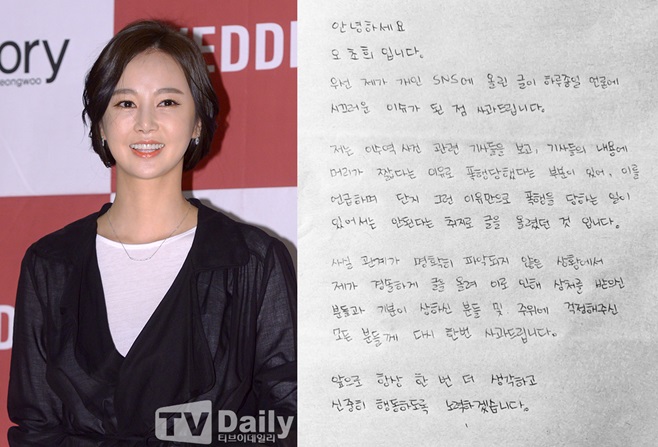 ory
eongwoo
WEDDI
TVDaily
티브이데일리
안녕하세요
오초희 입니다.
우선 제가 개인 SNS에 올린 글이 하루종일 언론에
시끄러운 이슈가 된 점 사과드립니다.
저는 이수역 사건 관련 기사들을 보고, 기사들의 내용에
머리가 짧다는 이유로 폭행당했다는 부분이 있어, 이를
언급하며 단지 그런 이유만으로 폭행을 당하는 일이
있어서는 안된다는 취지로 글을 올렸던 것 입니다.
사실 관계가 명확히 파악되지 않은 상황에서
제가 경솔하게 글을 올려 이로 인해 상처를 받으신
분들과 기분이 상하신 분들 및 주위에 걱정해주신
모든 분들께 다시 한번 사과드립니다.
앞으로 항상 한 번 더 생각하고
신중히 행동하도록 노력하겠습니다.